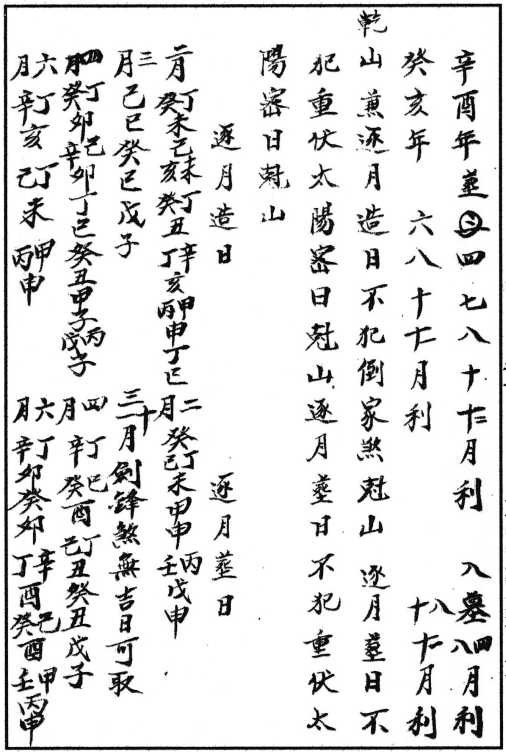 辛酉年葬㊂四七八十十二月利　入墓四八月利
癸亥年　六八十十二月利　八十十二月利
乾山兼逐月造日不犯倒家煞尅山　逐月葬日不
犯重伏太陽密日尅山逐月葬日不犯重伏太
陽密日尅山
逐月造日　逐月葬日
二月丁癸未己亥未癸丁丑辛丁亥甲丙申丁巳　二月癸丁己未甲申丙壬戊申
三月己巳癸巳戊子　三十月劍鋒煞無吉日可取
四月丁癸卯己辛卯丁巳癸丑甲子丙戊子　四月丁辛巳癸酉丁己丑癸丑戊子
六月丁辛亥丁己未甲丙申　六月丁辛卯癸卯辛丁酉己癸酉甲壬丙申